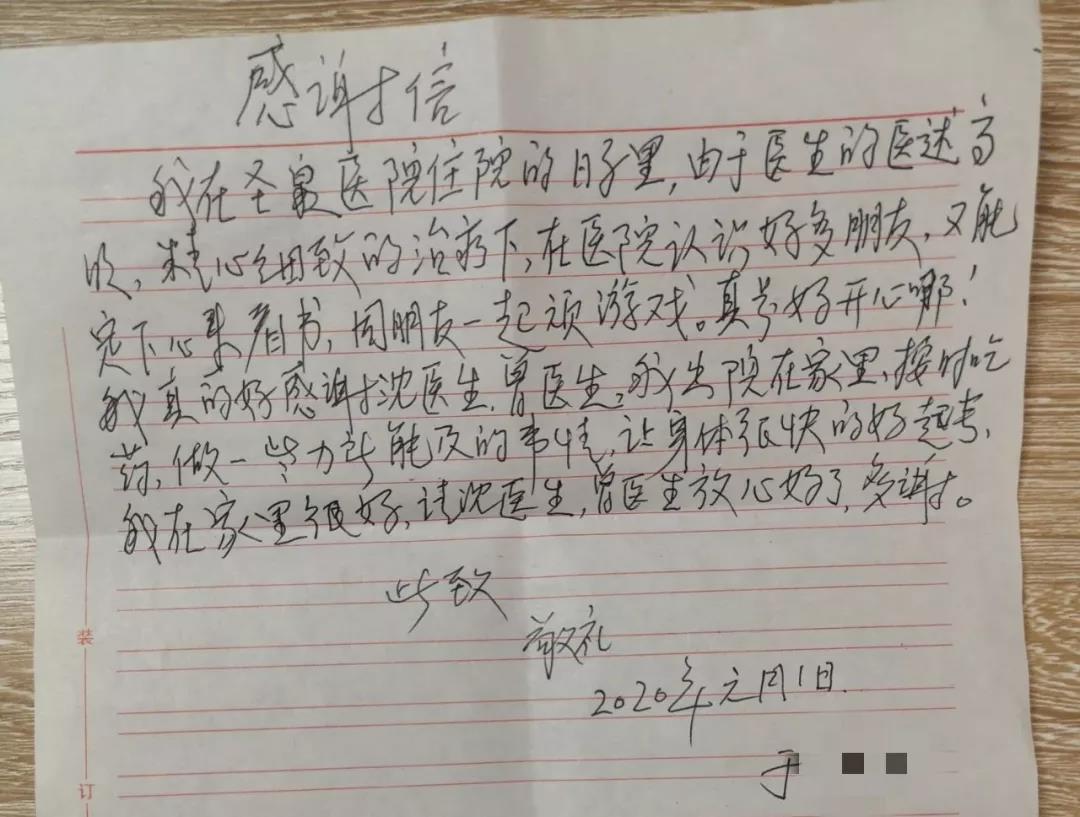 感谢信
我在圣泉医院住院的日子里,由于医生的医达高
明,精心细致的治疗下,在医院认识好多朋友,又能
定下心来看书,同朋友一起顽游戏。真号好开心哪!
我真的好感谢沈医生,曾医生,我出院在家里,按时吃
药,做一些力所能及的事情,让身体很快的好起来,
我在家里很好,请沈医生,曾医生放心好了,多谢。
此致
敬礼
2020年元月1日.
于
装
订